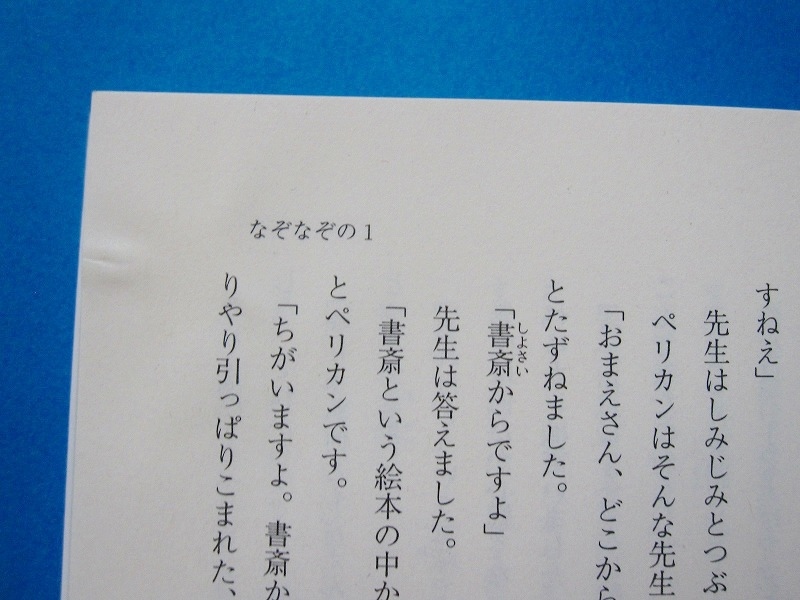 なぞなぞの1
すねえ」
先生はしみじみとつぶ
ペリカンはそんな先生
「おまえさん、どこから
とたずねました。
「書斎からですよ」
しよさい
先生は答えました。
「書斎という絵本の中か
とペリカンです。
「ちがいますよ。書斎か
りやり引っぱりこまれた、